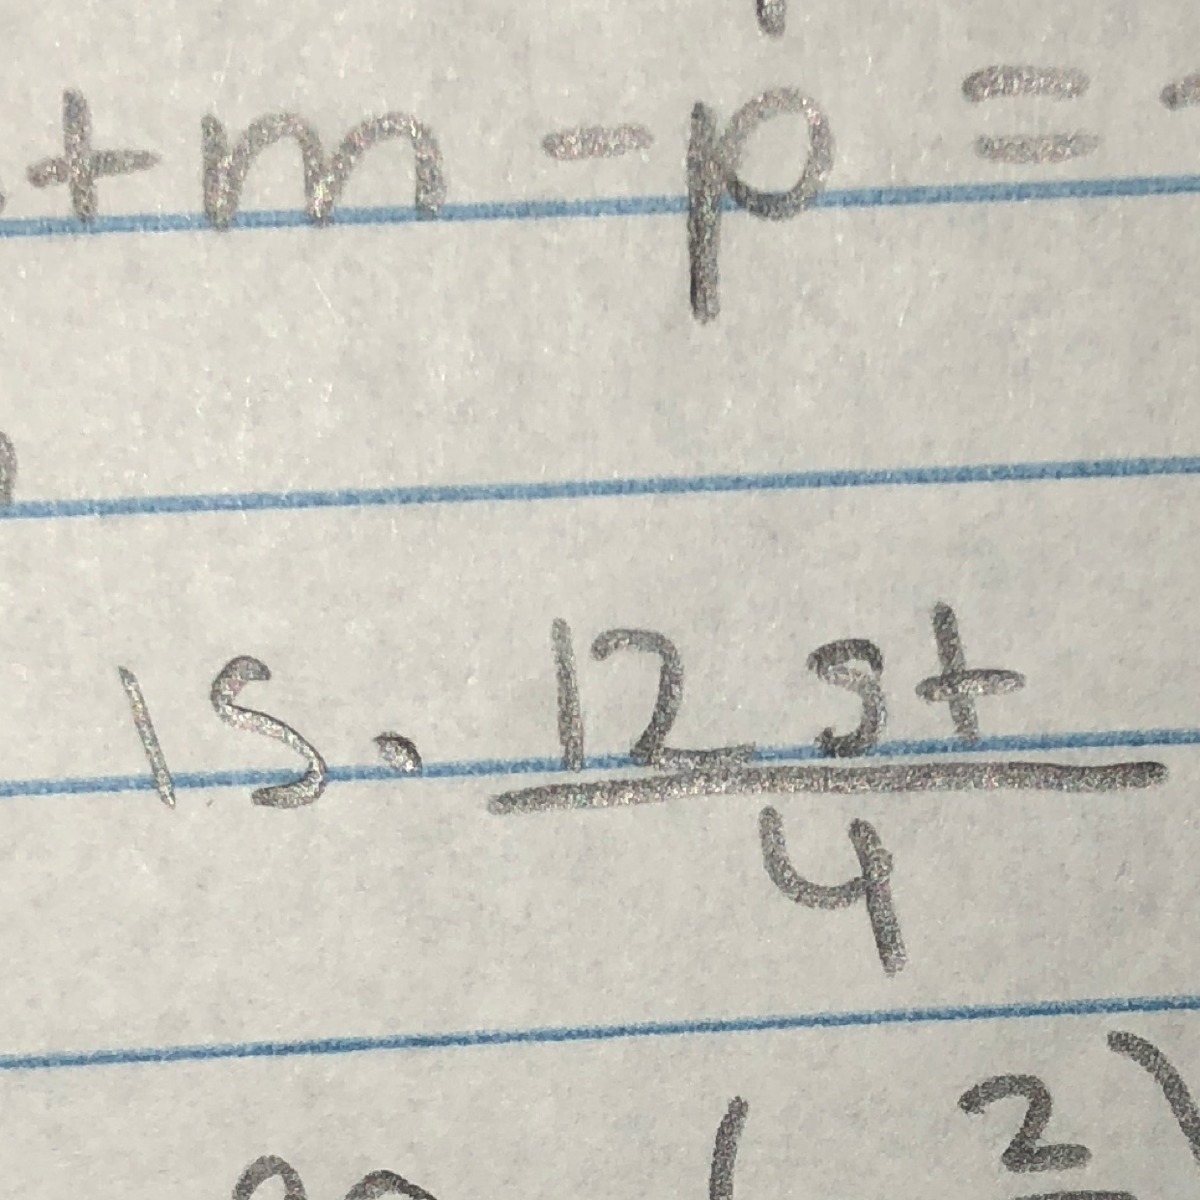 +m -p =
15. 12st
4
2